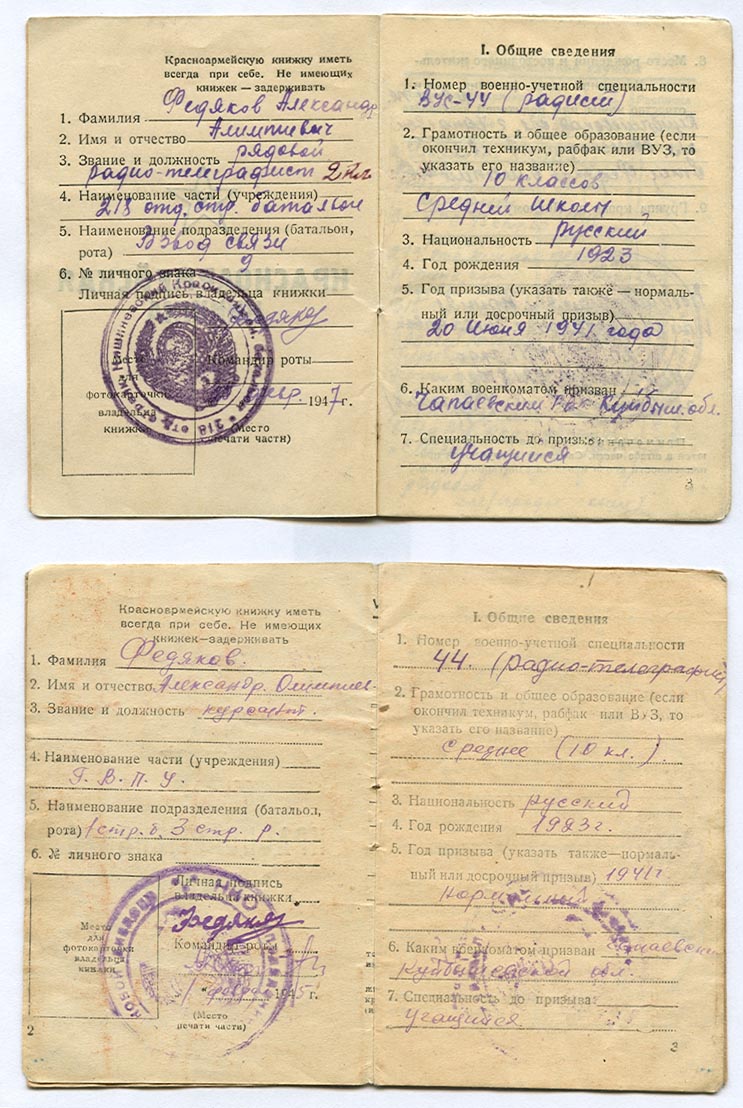 Красноармейскую книжку иметь
всегда при себе. Не имеющих
книжек — задерживать
1. Фамилия Федяков Александр
2. Имя и отчество Алимпиевич
3. Звание и должность рядовой
радио-телеграфист
4. Наименование части (учреждения)
218 отд. стр. батальон
5. Наименование подразделения (батальон,
рота) Взвод связи
6. № личного знака
Личная подпись владельца книжки
Место
для
фотокарточки
владельца
книжки
Командир роты
1947 г.
(Место
печати части)
I. Общие сведения
1. Номер военно-учетной специальности
ВУС-44 (радист)
2. Грамотность и общее образование (если
окончил техникум, рабфак или ВУЗ, то
указать его название)
10 классов
Средней школы
3. Национальность русский
4. Год рождения 1923
5. Год призыва (указать также — нормаль-
ный или досрочный призыв)
20 Июня 1941 года
6. Каким военкоматом призван
Чапаевским Рвк Куйбыш. обл.
7. Специальность до призыва
учащийся
3
Красноармейскую книжку иметь
всегда при себе. Не имеющих
книжек—задерживать
1. Фамилия Федяков.
2. Имя и отчество Александр. Олимпиев
3. Звание и должность курсант.
4. Наименование части (учреждения)
Г. В. П. У.
5. Наименование подразделения (батальон,
рота) 1 стр. б, 3 стр. р.
6. № личного знака
Личная подпись
владельца книжки
Федяков
Место
для
фотокарточки
владельца
книжки
Командир роты
1945 г.
(Место
печати части)
2
I. Общие сведения
1. Номер военно-учетной специальности
44. (радио-телеграфист)
2. Грамотность и общее образование (если
окончил техникум, рабфак или ВУЗ, то
указать его название)
среднее (10 кл.)
3. Национальность русский
4. Год рождения 1923 г.
5. Год призыва (указать также—нормаль-
ный или досрочный призыв) 1941 г.
нормальный
6. Каким военкоматом призван Чапаевским
Куйбышевской обл.
7. Специальность до призыва:
учащийся
3